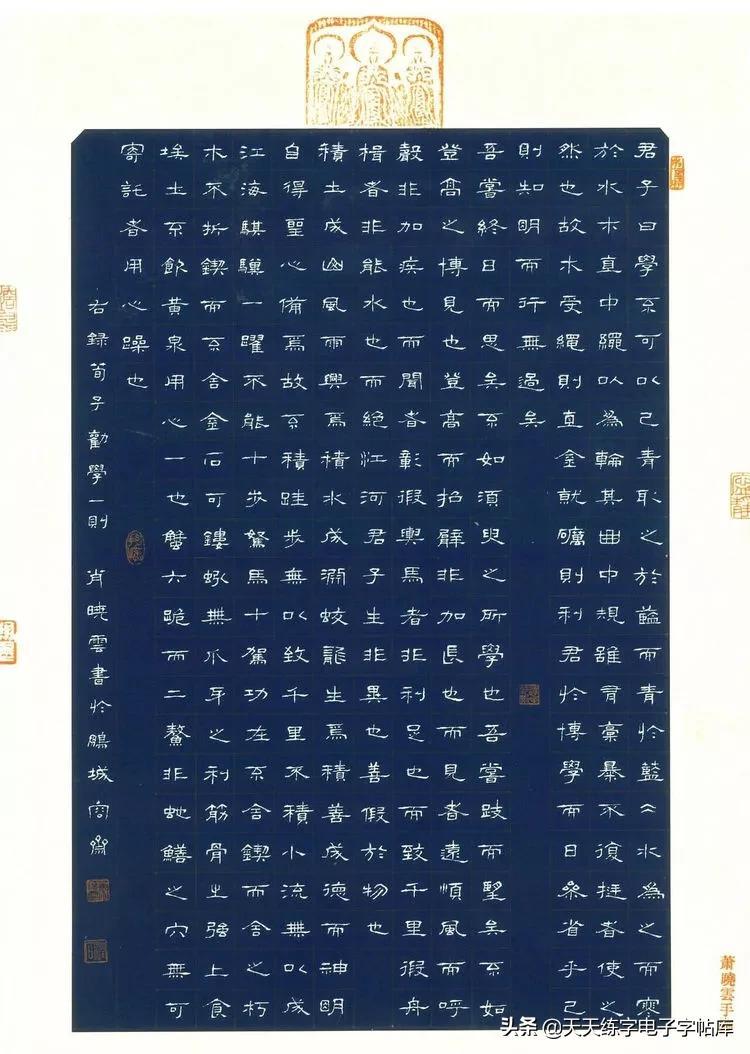 君子曰學不可以已青取之於藍而青於藍仌水為之而寒
於水木直中繩以為輪其曲中規雖有槀暴不復挺者使之
然也故木受繩則直金就礪則利君於博學而日參省乎己
則知明而行無過矣
吾嘗終日而思矣不如須臾之所學也吾嘗跂而望矣不如
登高之博見也登高而招臂非加長也而見者遠順風而呼
聲非加疾也而聞者彰假輿馬者非利足也而致千里假舟
楫者非能水也而絕江河君子生非異也善假於物也
積土成山風雨興焉積水成淵蛟龍生焉積善成德而神明
自得聖心備焉故不積跬步無以致千里不積小流無以成
江海騏驥一躍不能十步駑馬十駕功在不舍鍥而舍之朽
木不折鍥而不舍金石可鏤蚓無爪牙之利筋骨之強上食
埃土下飲黃泉用心一也蟹六跪而二螯非蛇鱔之穴無可
寄託者用心躁也
右錄荀子勸學一則 肖曉雲書於鵬城容齋
蕭曉雲手
头条 @天天练字电子字帖库